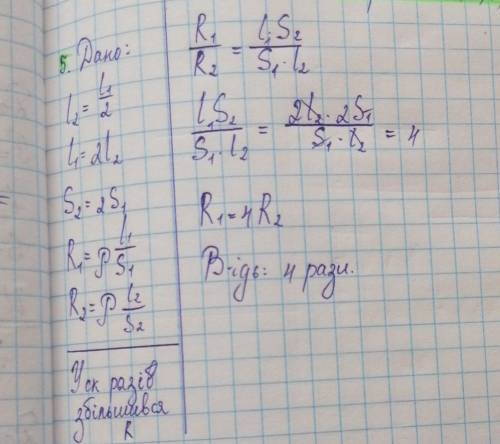 5. Дано:
l₂ = l₁/2
l₁ = 2l₂
S₂ = 2S₁
R₁ = ρ l₁/S₁
R₂ = ρ l₂/S₂
У ск разів
збільшився
R
R₁/R₂ = l₁S₂/S₁·l₂
l₁S₂/S₁·l₂ = 2l₂·2S₁/S₁·l₂ = 4
R₁ = 4R₂
В-ідь: 4 рази.